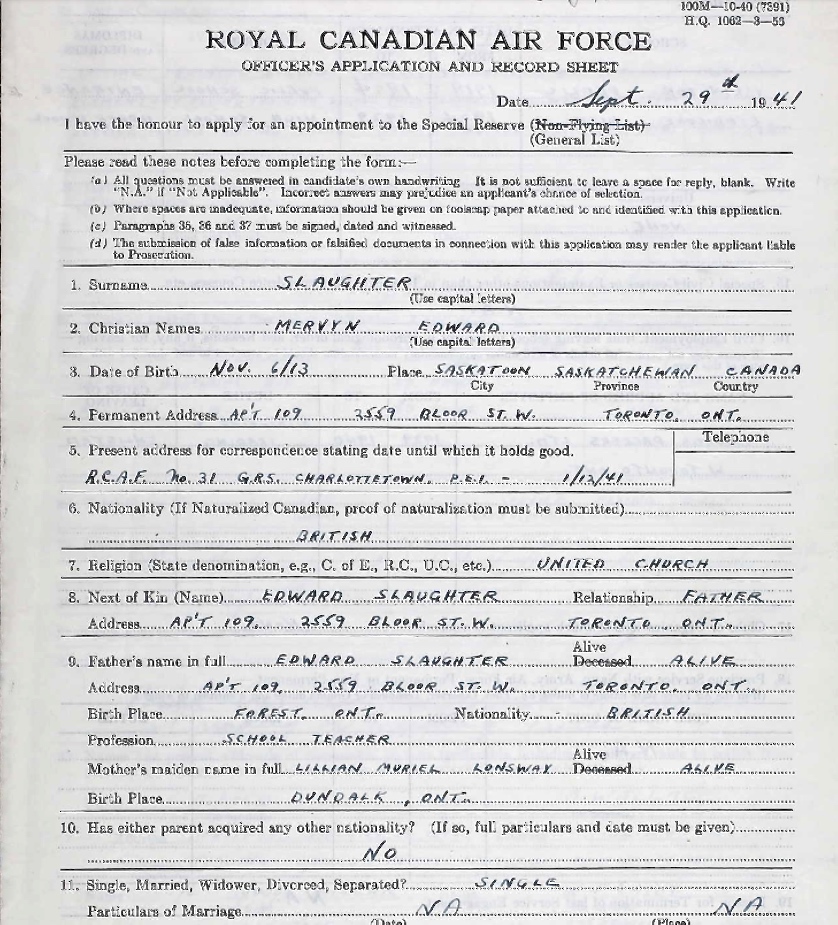 100M—10-40 (7391)
H.Q. 1062—3—53
ROYAL CANADIAN AIR FORCE
OFFICER'S APPLICATION AND RECORD SHEET
Date Sept. 29th 1941
I have the honour to apply for an appointment to the Special Reserve (Non-Flying List)
(General List)
Please read these notes before completing the form:—
(a) All questions must be answered in candidate's own handwriting It is not sufficient to leave a space for reply, blank. Write
"N.A." if "Not Applicable". Incorrect answers may prejudice an applicant's chance of selection.
(b) Where spaces are inadequate, information should be given on foolscap paper attached to and identified with this application.
(c) Paragraphs 35, 36 and 37 must be signed, dated and witnessed.
(d) The submission of false information or falsified documents in connection with this application may render the applicant liable
to Prosecution.
1. Surname SLAUGHTER
(Use capital letters)
2. Christian Names MERVYN EDWARD
(Use capital letters)
3. Date of Birth NOV. 6/13 Place SASKATOON SASKATCHEWAN CANADA
City Province Country
4. Permanent Address AP'T 109 2559 BLOOR ST. W. TORONTO, ONT.
Telephone
5. Present address for correspondence stating date until which it holds good.
R.C.A.F. No. 31 G.R.S. CHARLOTTETOWN, P.E.I. - 1/12/41
6. Nationality (If Naturalized Canadian, proof of naturalization must be submitted)
BRITISH
7. Religion (State denomination, e.g., C. of E., R.C., U.C., etc.) UNITED CHURCH
8. Next of Kin (Name) EDWARD SLAUGHTER Relationship FATHER
Address AP'T 109, 2559 BLOOR ST. W. TORONTO, ONT.
Alive
9. Father's name in full EDWARD SLAUGHTER Deceased ALIVE
Address AP'T 109, 2559 BLOOR ST. W. TORONTO. ONT.
Birth Place FOREST, ONT. Nationality - BRITISH
Profession SCHOOL TEACHER
Alive
Mother's maiden name in full LILLIAN MURIEL LONSWAY Deceased ALIVE
Birth Place DUNDALK, ONT.
10. Has either parent acquired any other nationality? (If so, full particulars and date must be given)
NO
11. Single, Married, Widower, Divorced, Separated? SINGLE
Particulars of Marriage NA NA
(Date) (Place)